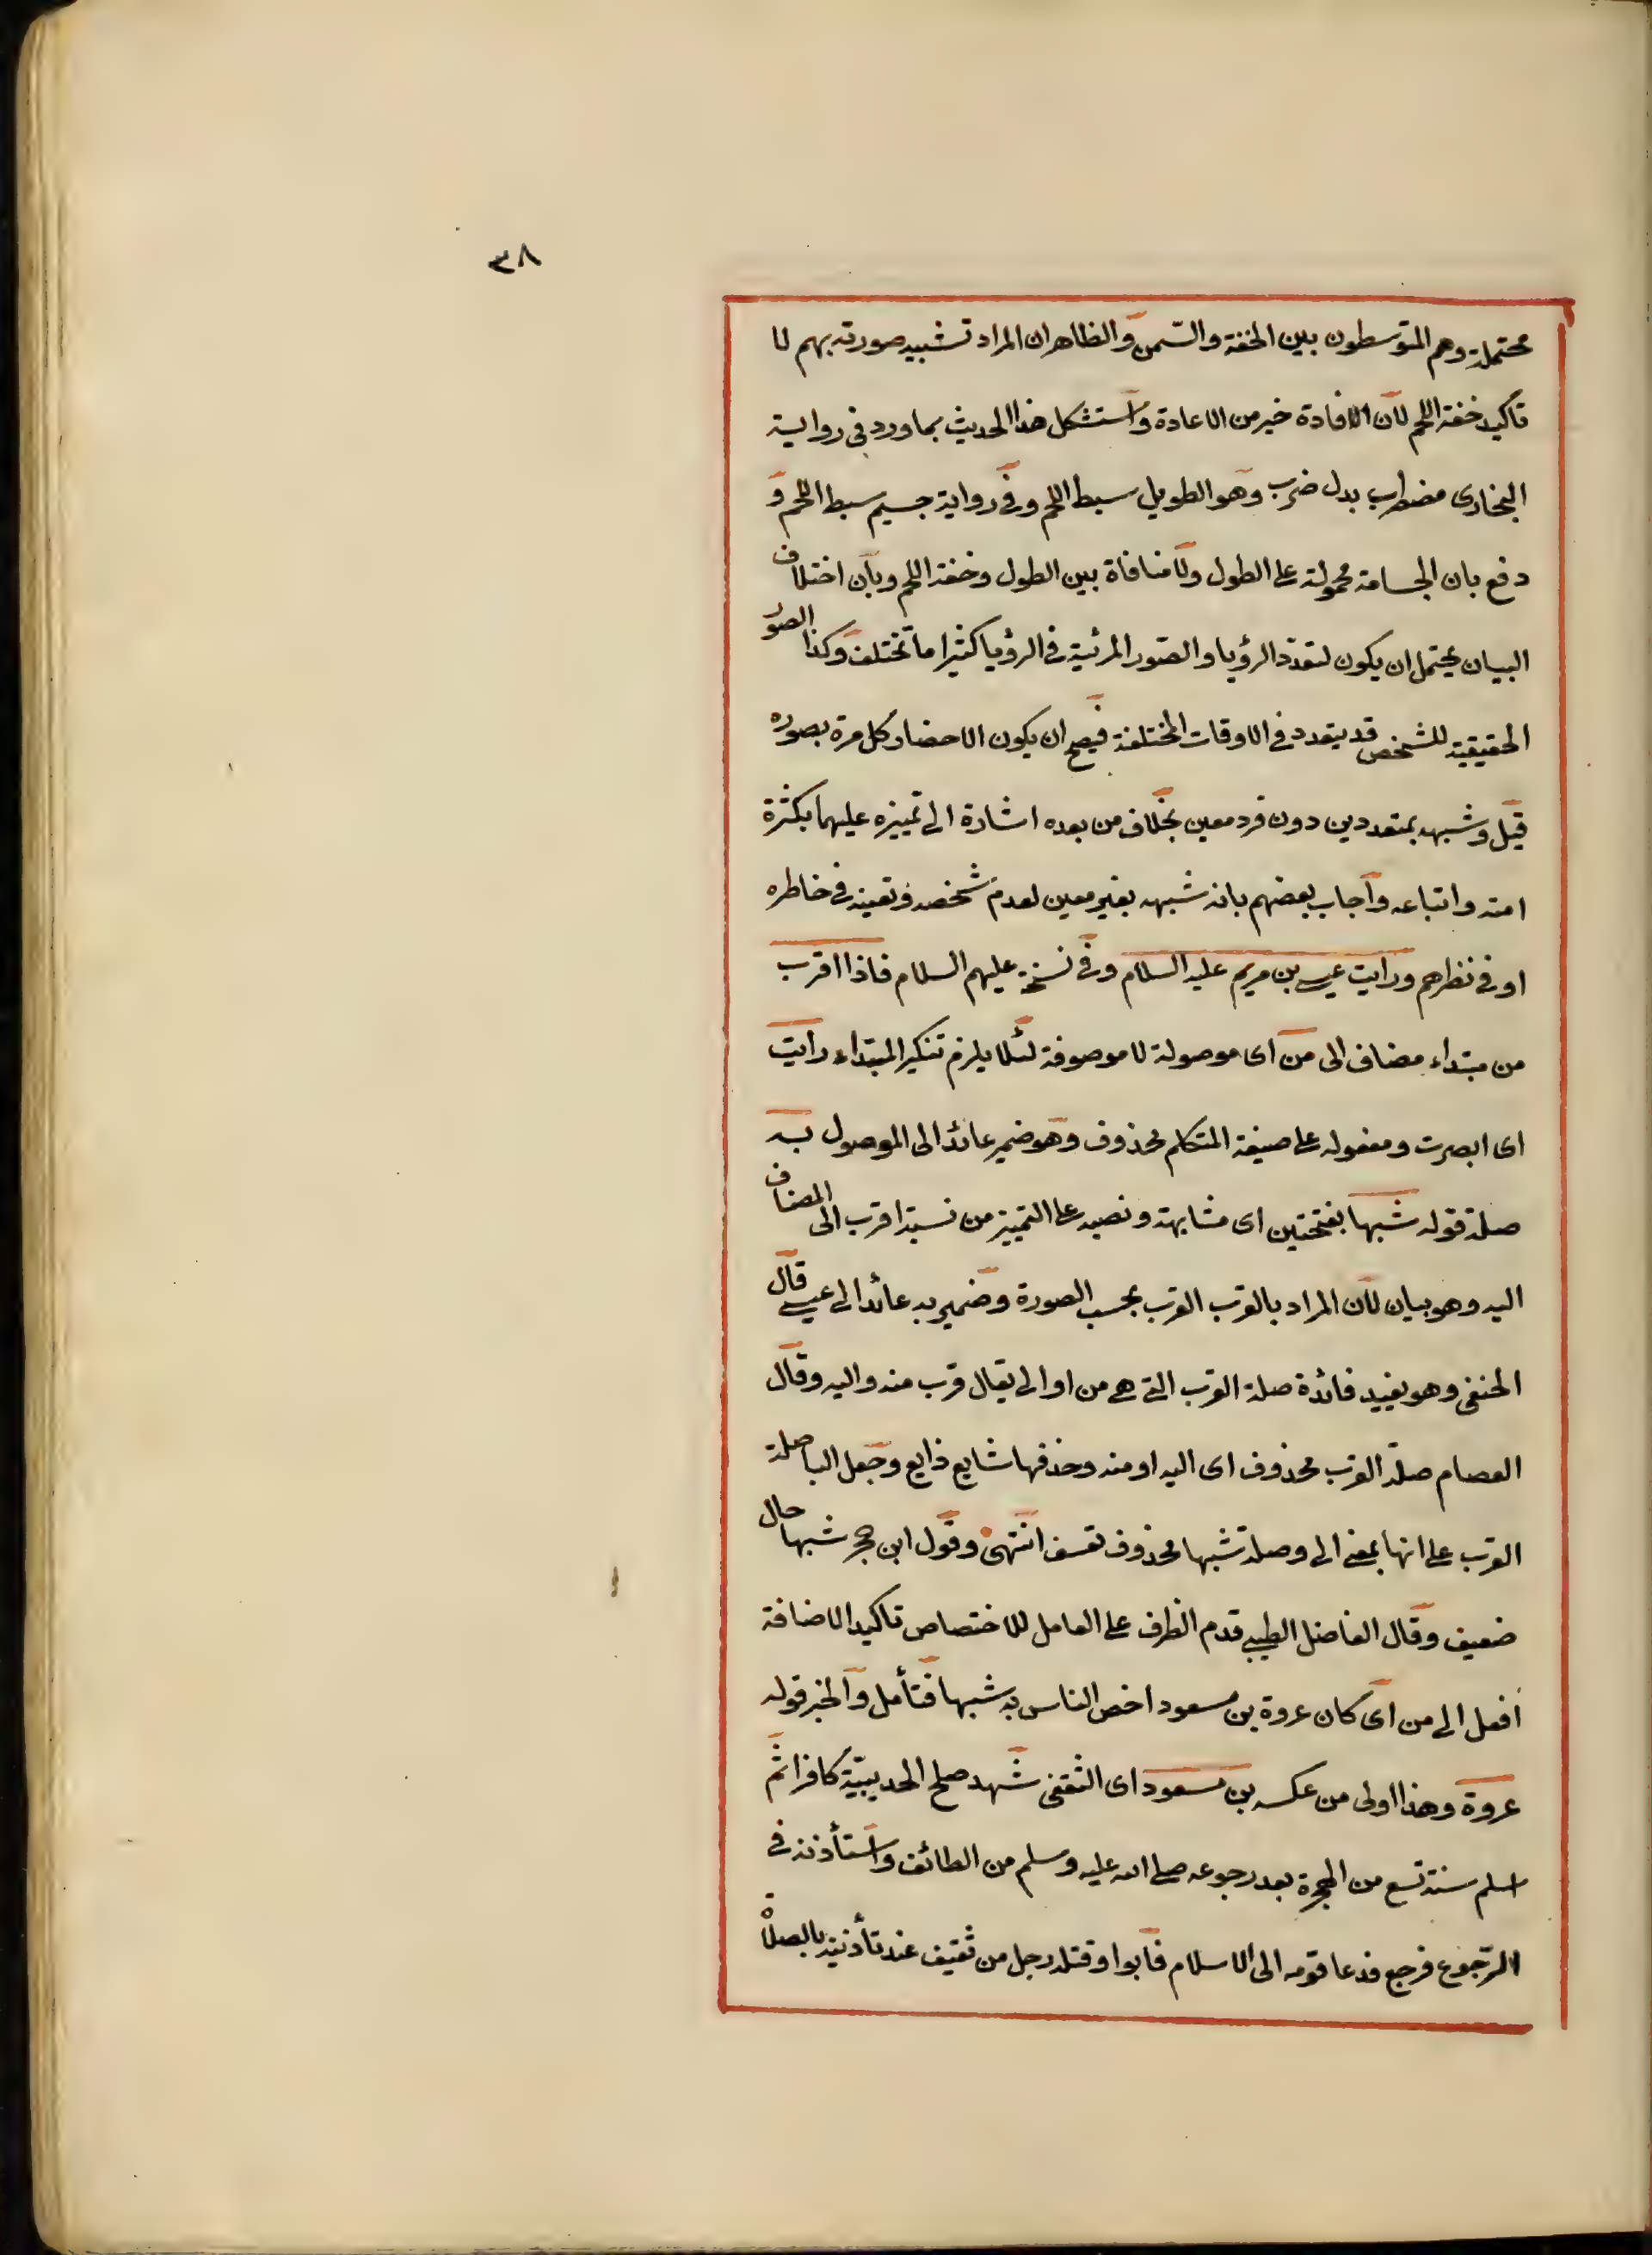 ٣٨
محتملة وهم المتوسطون بين الخفة والسّمن والظاهر ان المراد تشبيه صورته بهم لا
تاكيد خفة اللحم لان الافادة خير من الاعادة واستشكل هذا الحديث بما ورد فى رواية
البخارى مضطرب بدل ضرب وهو الطويل سبط اللحم وفى رواية جسيم سبط اللحم و
دفع بان الجسامة محمولة على الطول ولا منافاة بين الطول وخفة اللحم وبان اختلاف
البيان يحتمل ان يكون لتعدد الرؤيا والصور المرئية فى الرؤيا كثيرا ما تختلف وكذا الصور
الحقيقية للشخص قد يتعدد فى الاوقات المختلفة فيصح ان يكون الاحضار كل مرة بصوره
قيل وشبهه بمتعددين دون فرد معين بخلاف من بعده اشارة الى تمييزه عليهما بكثرة
امته واتباعه وأجاب بعضهم بانه شبهه بغير معين لعدم تشخصه وتعينه فى خاطره
او فى نظرهم ورايت عيسى بن مريم عليه السلام وفى نسخة عليهم السلام فاذا اقرب
من مبتداء مضاف الى من اى موصولة لا موصوفة لئلا يلزم تنكير المبتداء رأيت
اى ابصرت ومفعوله على صيغة المتكلم محذوف وهو ضمير عائد الى الموصول به
صلة قوله شبها بفتحتين اى مشابهة ونصبه على التمييز من نسبة اقرب الى المضاف
اليه وهو بيان لان المراد بالقرب القرب بحسب الصورة وضمير به عائد الى عيسى قال
الحنفى وهو يفيد فائدة صلة القرب التى هى من او الى يقال قرب منه واليه وقال
العصام صلة القرب محذوف اى اليه او منه وحذفها شايع ذايع وجعل البا صلة
القرب على انها بمعنى الى وصلة شبها محذوف تعسف انتهى وقول ابن حجر شبها حال
ضعيف وقال الفاضل الطيبى قدم الظرف على العامل للاختصاص تاكيد الاضافة
أفعل الى من اى كان عروة بن مسعود اخص الناس به شبها فتأمل والخبر قوله
عروة وهذا اولى من عكسه بن مسعود اى الثقفى شهد صلح الحديبيّة كافرا ثم
اسلم سنة تسع من الهجرة بعد رجوعه صلى الله عليه وسلم من الطائف واستأذنه فى
الرّجوع فرجع فدعا قومه الى الاسلام فابوا وقتله رجل من ثقيف عند تأذنيه بالصلاة